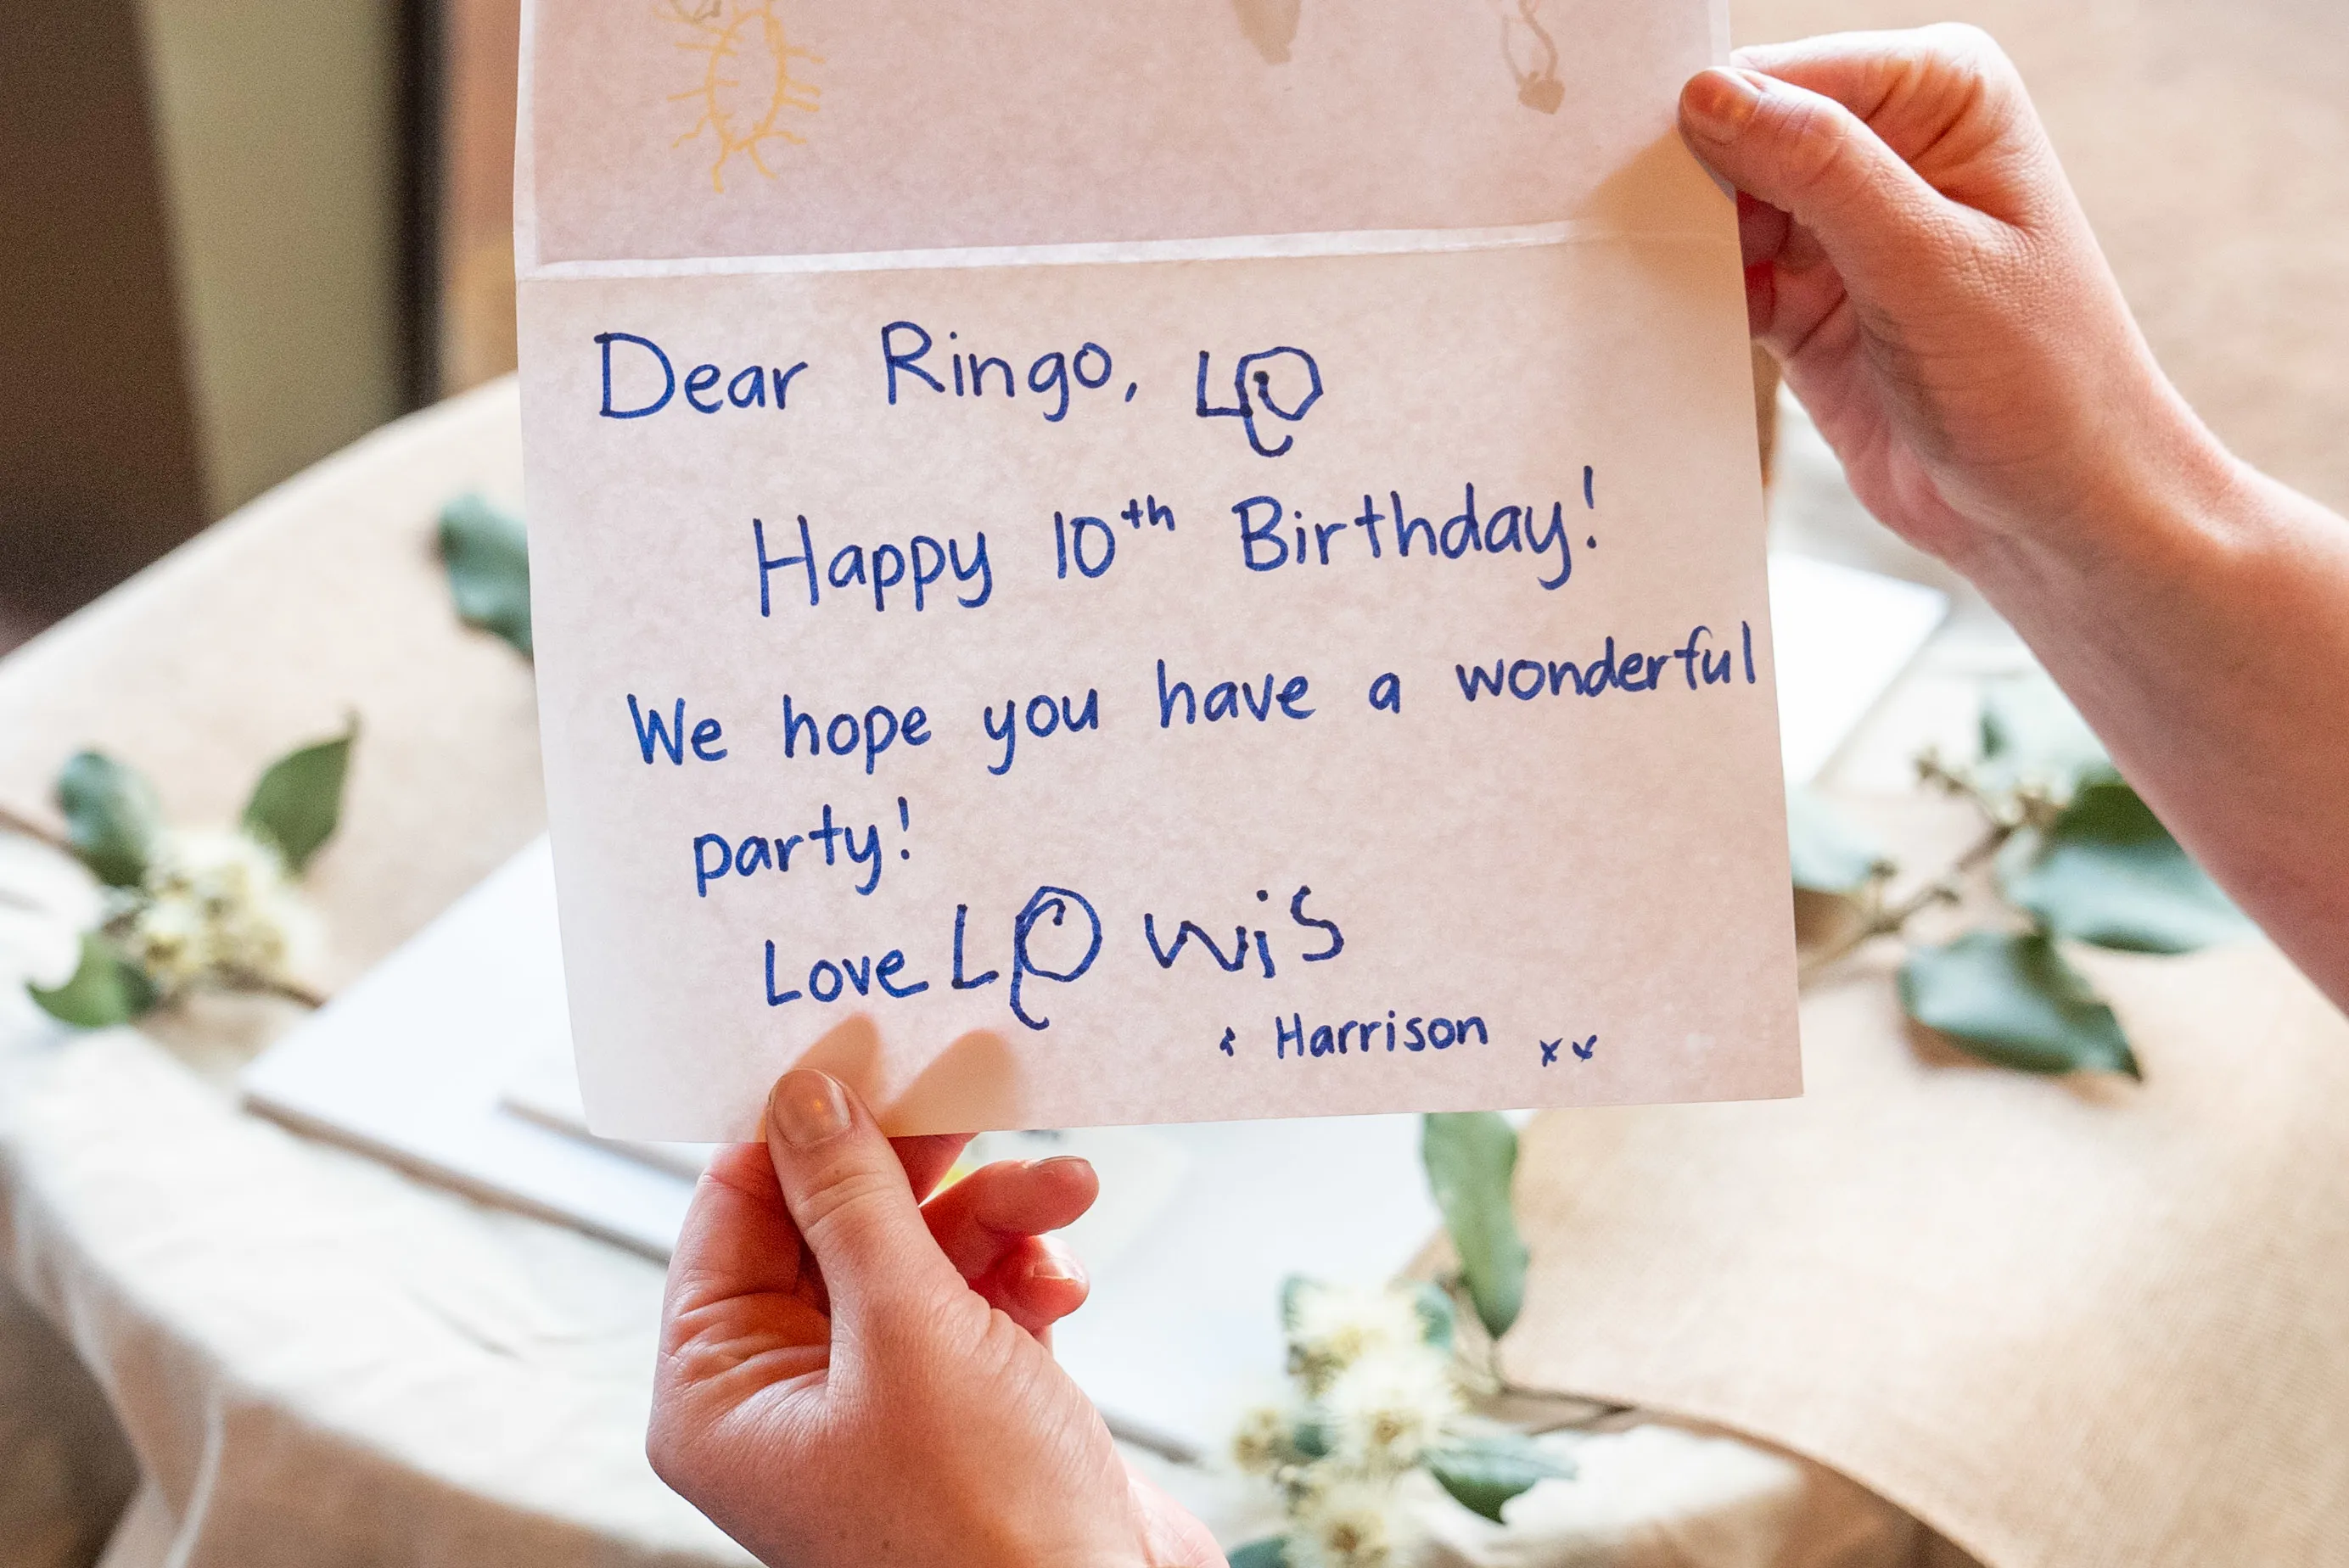 Dear Ringo, LO
Happy 10th Birthday!
We hope you have a wonderful
party!
Love LO wiS
+ Harrison xx